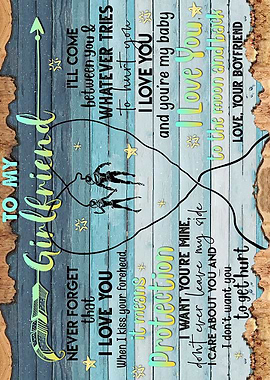 TO MY
Girlfriend
NEVER FORGET
that
I LOVE YOU
When I kiss your forehead,
it means
Protection
I WANT YOU'RE MINE,
don't ever leave my side
I CARE ABOUT YOU AND
I don't want you
to get hurt
I'LL COME
between you &
WHATEVER TRIES
to hurt you
I LOVE YOU
and you're my baby
I Love You
to the moon and back
LOVE, YOUR BOYFRIEND